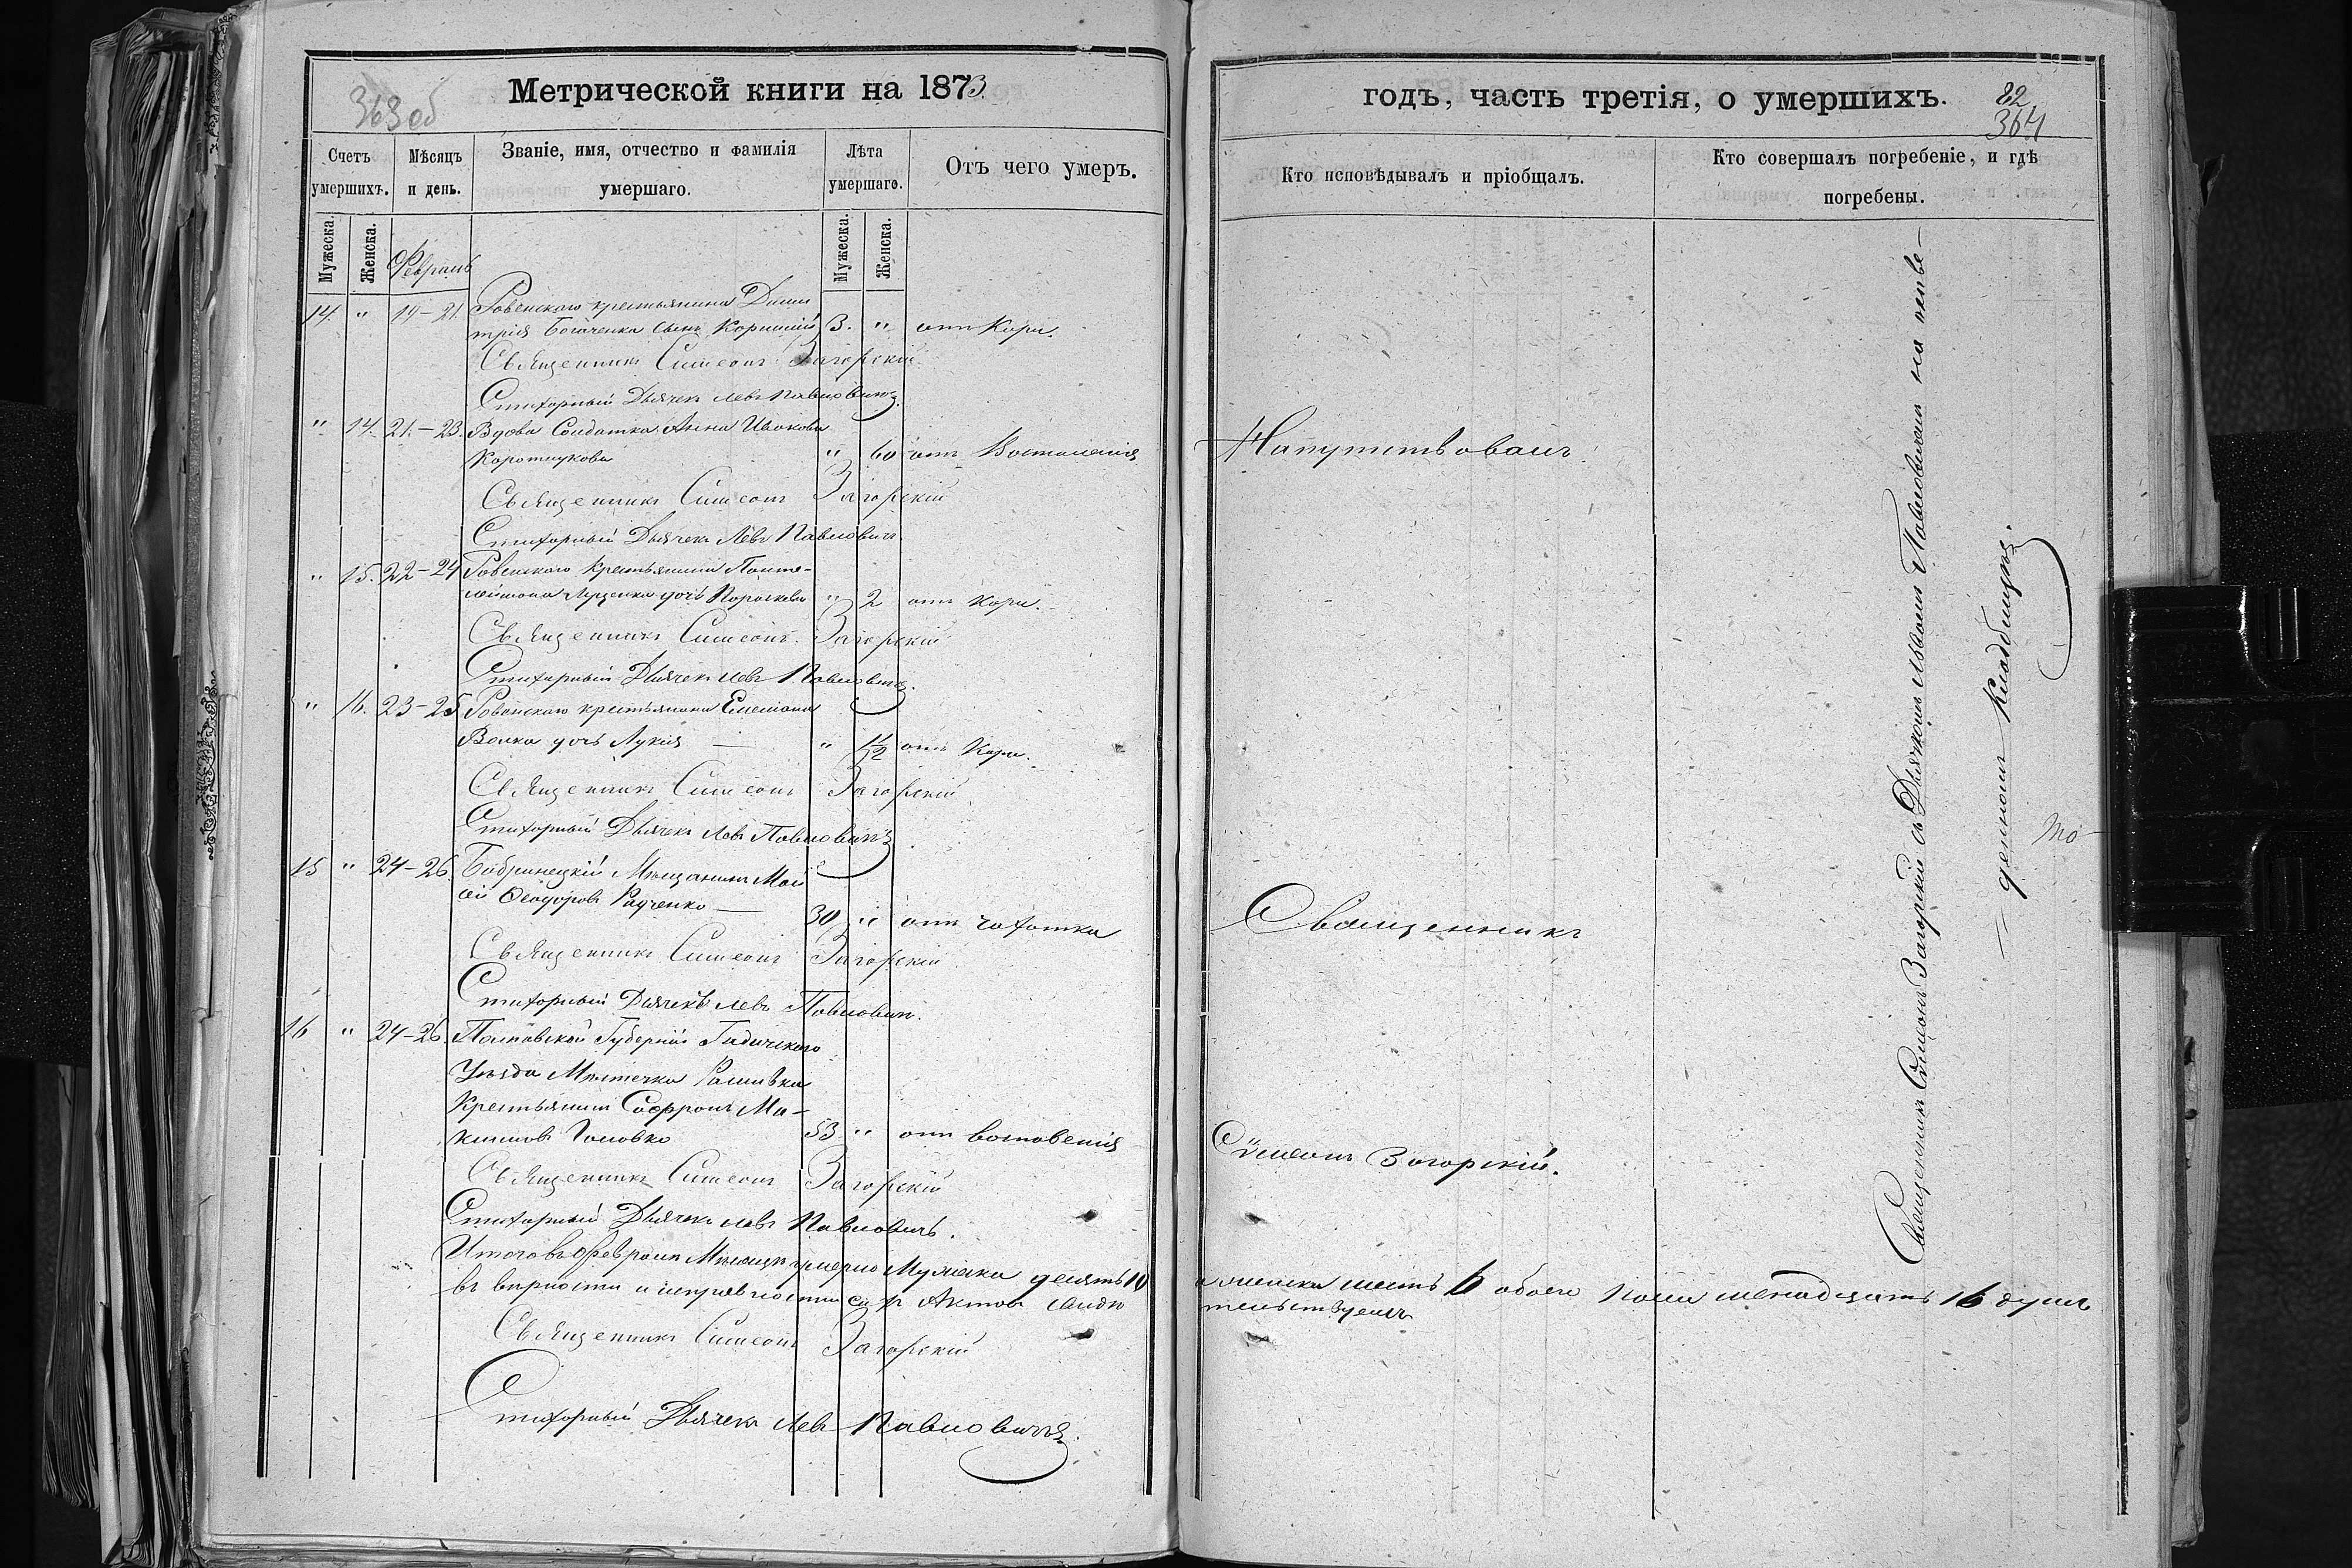 363 об
Метрической книги на 1873
Счетъ умершихъ.
Мѣсяцъ и день.
Званіе, имя, отчество и фамилія умершаго.
Лѣта умершаго.
Отъ чего умеръ.
Мужеска.
Женска.
Мужеска.
Женска.
Февраль
14. " 19-21. Ровенскаго крестьянина Дими
трія Богаченка сынъ Корнилій 3. " отъ Кори.
Священникъ Симеонъ Загорскій
Стихарный Дьячекъ Левъ Павловичъ.
" 14. 21.-23. Вдова Солдатка Анна Иванова
Коротчукова " 60 отъ Воспаленія
Священникъ Симеонъ Загорскій
Стихарный Дьячекъ Левъ Павловичъ
" 15. 22-24 Ровенскаго Крестьянина Панте-
леймона Луценка дочь Параскева " 2 отъ Кори.
Священникъ Симеонъ Загорскій
Стихарный Дьячекъ Левъ Павловичъ.
" 16. 23-25 Ровенскаго крестьянина
Волка дочь Лукія — " отъ Кори.
Священникъ Симеонъ Загорскій
Стихарный Дьячекъ Левъ Павловичъ
15 " 24-26. Бобринецкій Мѣщанинъ Мой
сей Феодоровъ Радченко — 30 " отъ чахотки
Священникъ Симеонъ Загорскій
Стихарный Дьячекъ Левъ Павловичъ.
16 " 24-26. Полтавской Губерніи Гадичскаго
Уѣзда Мѣстечка Рашивка
Крестьянинъ Софронъ Ма-
ксимовъ Головко 53 " отъ
Священникъ Симеонъ Загорскій
Стихарный Дьячекъ Левъ Павловичъ.
Итого въ Февралѣ Мѣсяцѣ умерло Мужеска десять 10
въ вѣрности и исправности сихъ Актовъ свидѣ
Священникъ Симеонъ Загорскій
Стихарный Дьячекъ Левъ Павловичъ.
годъ, часть третія, о умершихъ.
82
364
Кто исповѣдывалъ и пріобщалъ.
Кто совершалъ погребеніе, и гдѣ погребены.
Напутствовалъ
Священникъ
Симеонъ Загорскій.
Священникъ Симеонъ Загорскій съ Дьячкомъ Львомъ Павловичемъ на отве-
денномъ Кладбищѣ.
то-
женска шесть 6 обоего пола шестнадцать 16 душъ
тельствуемъ